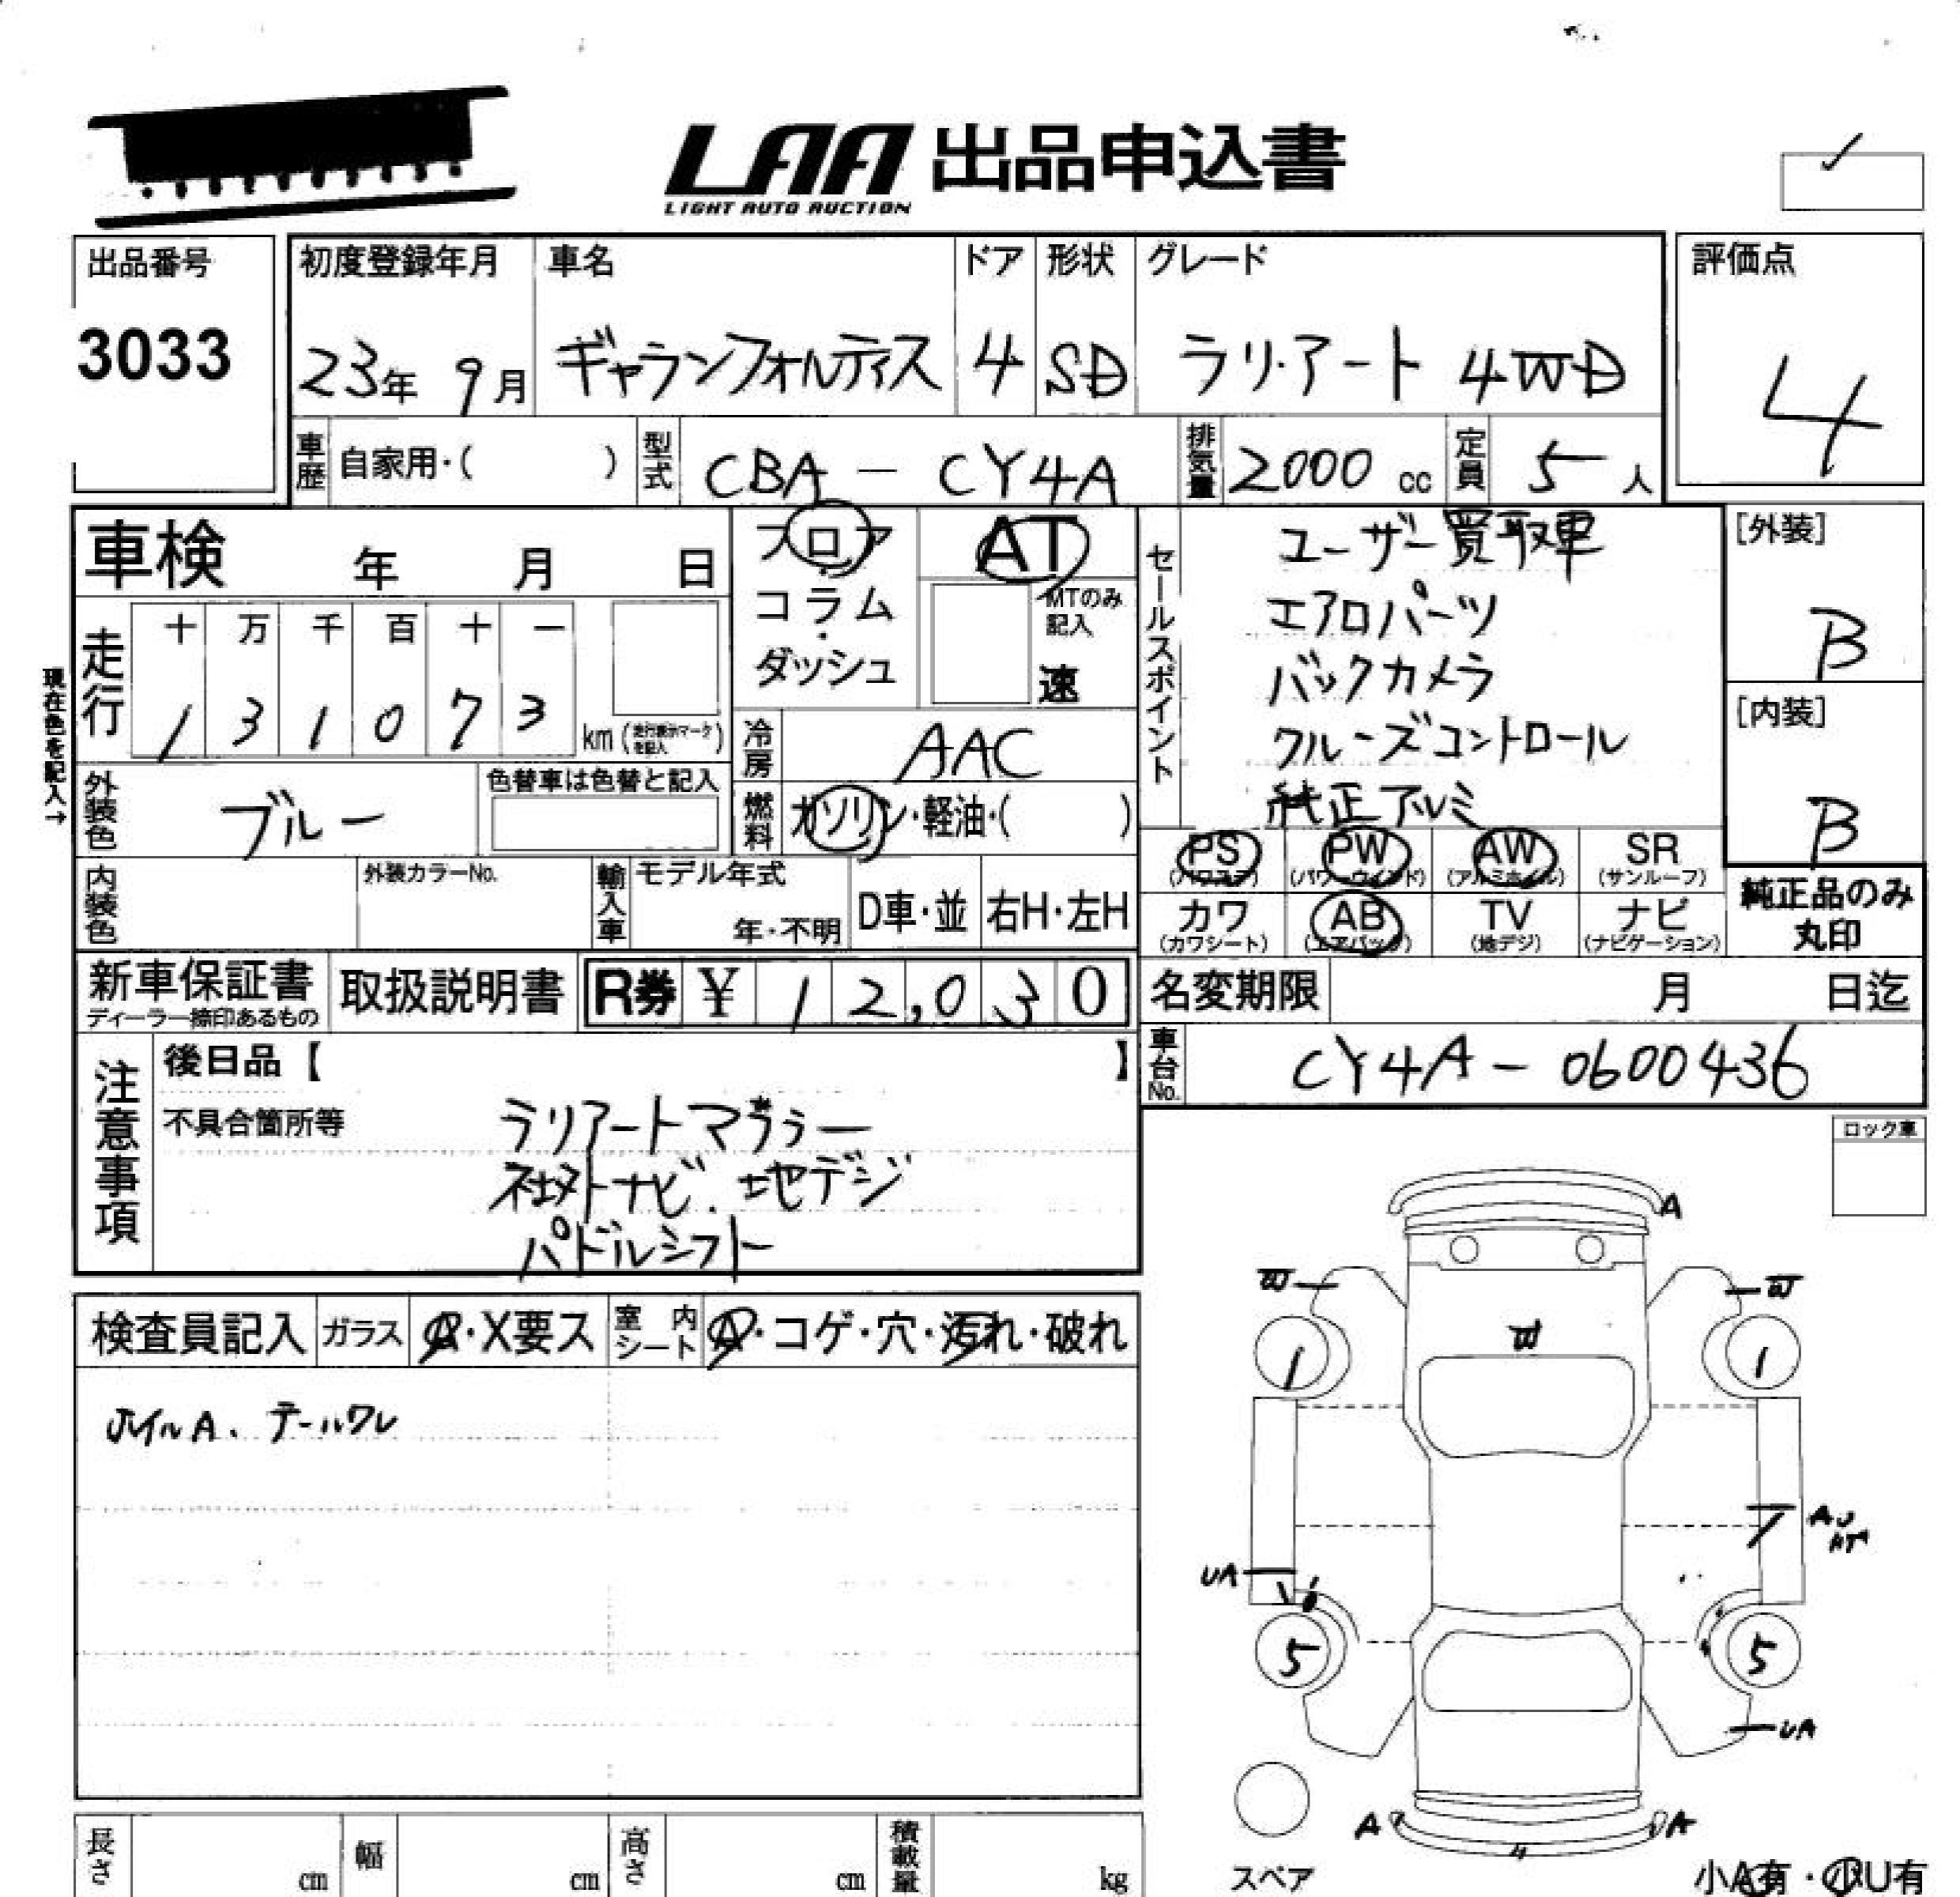 LAA 出品申込書
LIGHT AUTO AUCTION
出品番号
3033
初度登録年月 車名 ドア 形状 グレード
23年 9月 ギャランフォルティス 4 SD ラリーアート 4WD
評価点
4
車歴 自家用・( ) 型式 CBA - CY4A 排気量 2000 cc 定員 5 人
車検 年 月 日
フロア
・
コラム
・
ダッシュ
AT
MTのみ記入
速
走行
十 万 千 百 十 一
1 3 1 0 7 3 km (走行表示マークを記入)
現在色を記入→
冷房 AAC
外装色 ブルー 色替車は色替と記入
燃料 ガソリン・軽油・( )
内装色 外装カラーNo. 輸入車 モデル年式 年・不明 D車・並 右H・左H
セールスポイント
ユーザー買取車
エアロパーツ
バックカメラ
クルーズコントロール
純正アルミ
[外装]
B
[内装]
B
PS PW AW SR
(パワステ) (パワーウインド) (アルミホイル) (サンルーフ)
カワ AB TV ナビ
(カワシート) (エアバック) (地デジ) (ナビゲーション)
純正品のみ
丸印
新車保証書 取扱説明書 R券 ¥ 12,030
ディーラー捺印あるもの
名変期限 月 日迄
車台No. CY4A - 0600436
注意事項
後日品【 】
不具合箇所等
ラリアートマフラー
ナビ. 地デジ
パドルシフト
ロック車
検査員記入 ガラス A・X要ス 室内シート A・コゲ・穴・汚れ・破れ
ホイルA、テールワレ
A
W W
W
1 1
UA
5 5
UA
A A
スペア
小A有・小U有
長さ cm 幅 cm 高さ cm 積載量 kg